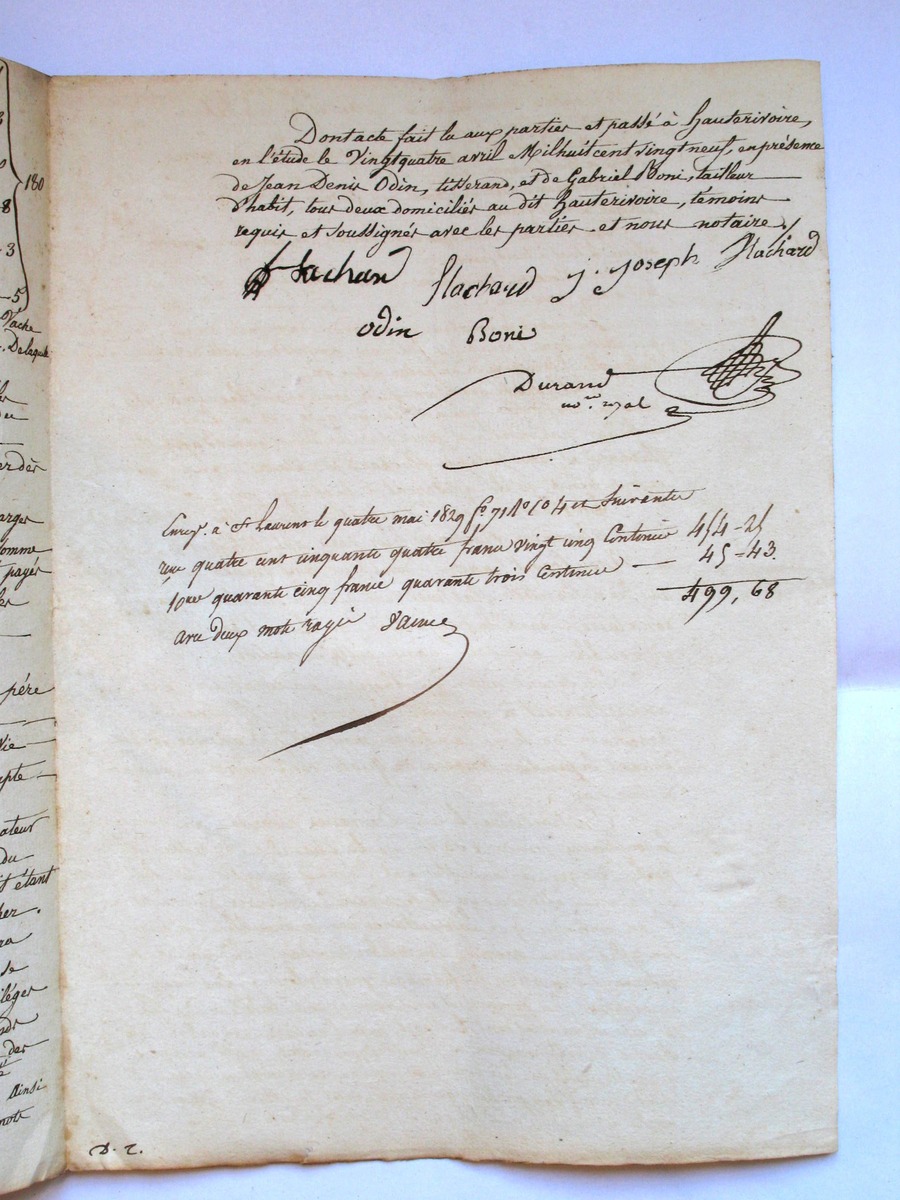 180
8
3
5
Vache
Dont acte fait lu aux parties et passé à hauterivoire,
en l'étude le vingt quatre avril Mil huit cent vingt neuf, en présence
de Jean Denis Odin, tisserand, et de Gabriel Boni, tailleur
d'habit, tous deux domiciliés au dit hauterivoire, témoins
requis et soussignés avec les parties et nous notaire./
flachard j. joseph flachard
odin Boni
Durand
Enreg. à St Laurent le quatre mai 1829 fo 71 et suivantes
reçu quatre cent cinquante quatre francs vingt cinq Centimes 454-25
10eme quarante cinq francs quarante trois Centimes — 45-43
499, 68
avec deux mots rayés
père
Vie
du
étant
se
des
Ainsi
D. r.